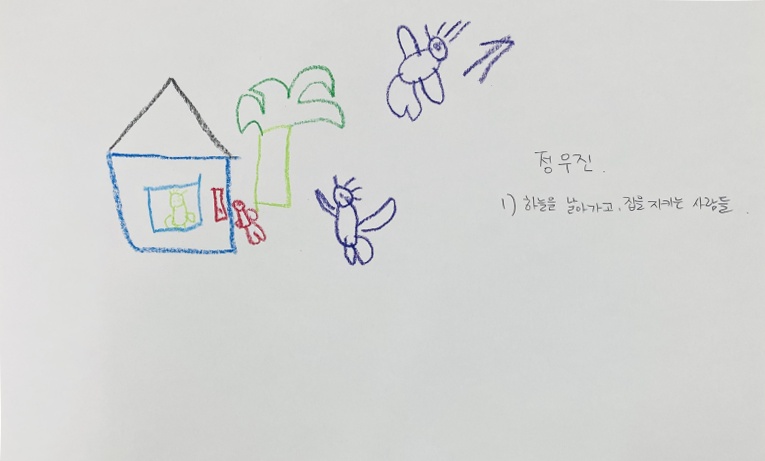 정우진.
1) 하늘을 날아가고, 집을 지키는 사람들.